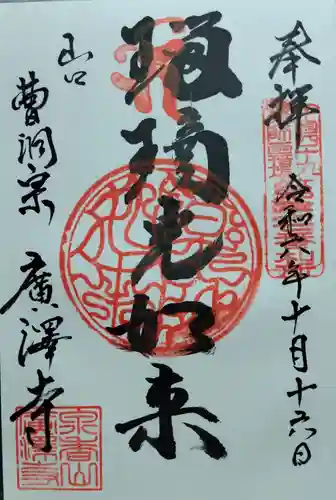 奉拝 令和六年十月十六日
瑠璃光如来
山口
曹洞宗 廣澤寺